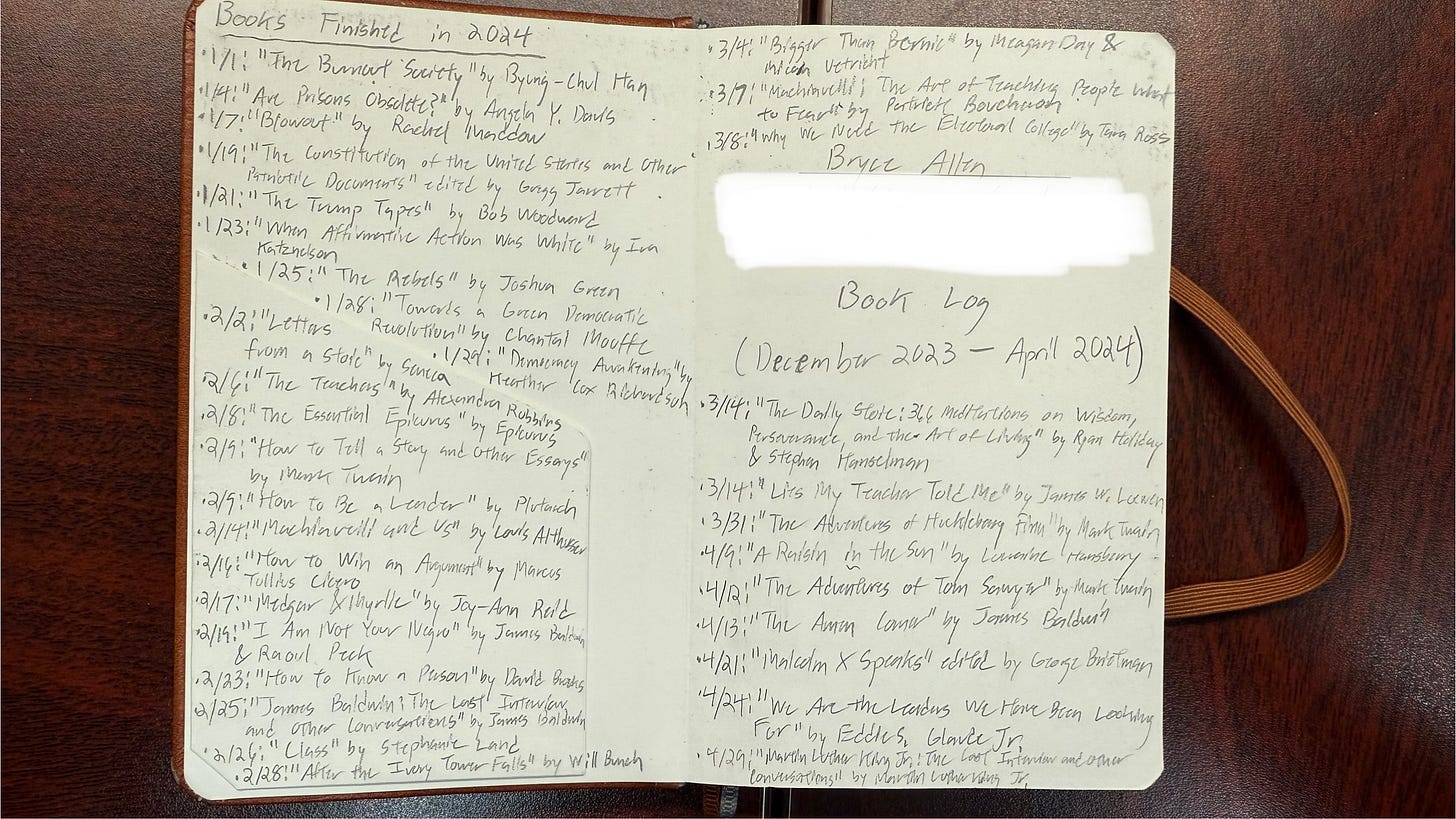 Books Finished in 2024
• 1/1: "The Burnout Society" by Byung-Chul Han
• 1/4: "Are Prisons Obsolete?" by Angela Y. Davis
• 1/7: "Blowout" by Rachel Maddow
• 1/19: "The Constitution of the United States and Other
Patriotic Documents" edited by Gregg Jarrett
• 1/21: "The Trump Tapes" by Bob Woodward
• 1/23: "When Affirmative Action Was White" by Ira
Katznelson
• 1/25: "The Rebels" by Joshua Green
• 1/28: "Towards a Green Democratic
Revolution" by Chantal Mouffe
• 1/29: "Democracy Awakening" by
Heather Cox Richardson
• 2/2: "Letters
from a Stoic" by Seneca
• 2/6: "The Teachers" by Alexandra Robbins
• 2/8: "The Essential Epicurus" by Epicurus
• 2/9: "How to Tell a Story and Other Essays"
by Mark Twain
• 2/9: "How to Be a Leader" by Plutarch
• 2/14: "Machiavelli and Us" by Louis Althusser
• 2/16: "How to Win an Argument" by Marcus
Tullius Cicero
• 2/17: "Medgar & Myrlie" by Joy-Ann Reid
• 2/19: "I Am Not Your Negro" by James Baldwin
& Raoul Peck
• 2/23: "How to Know a Person" by David Brooks
• 2/25: "James Baldwin: The Last Interview
and other Conversations" by James Baldwin
• 2/26: "Class" by Stephanie Land
• 2/28: "After the Ivory Tower Falls" by Will Bunch
• 3/4: "Bigger Than Bernie" by Meagan Day &
Micah Uetricht
• 3/7: "Machiavelli: The Art of Teaching People What
to Fear" by Patrick Boucheron
• 3/8: "Why We Need the Electoral College" by Tara Ross
Bryce Allen
Book Log
(December 2023 – April 2024)
• 3/14: "The Daily Stoic: 366 Meditations on Wisdom,
Perseverance, and the Art of Living" by Ryan Holiday
& Stephen Hanselman
• 3/14: "Lies My Teacher Told Me" by James W. Loewen
• 3/31: "The Adventures of Huckleberry Finn" by Mark Twain
• 4/9: "A Raisin in the Sun" by Lorraine Hansberry
• 4/12: "The Adventures of Tom Sawyer" by Mark Twain
• 4/13: "The Amen Corner" by James Baldwin
• 4/21: "Malcolm X Speaks" edited by George Breitman
• 4/24: "We Are the Leaders We Have Been Looking
For" by Eddie S. Glaude Jr.
• 4/29: "Martin Luther King Jr.: The Last Interview and other
Conversations" by Martin Luther King Jr.